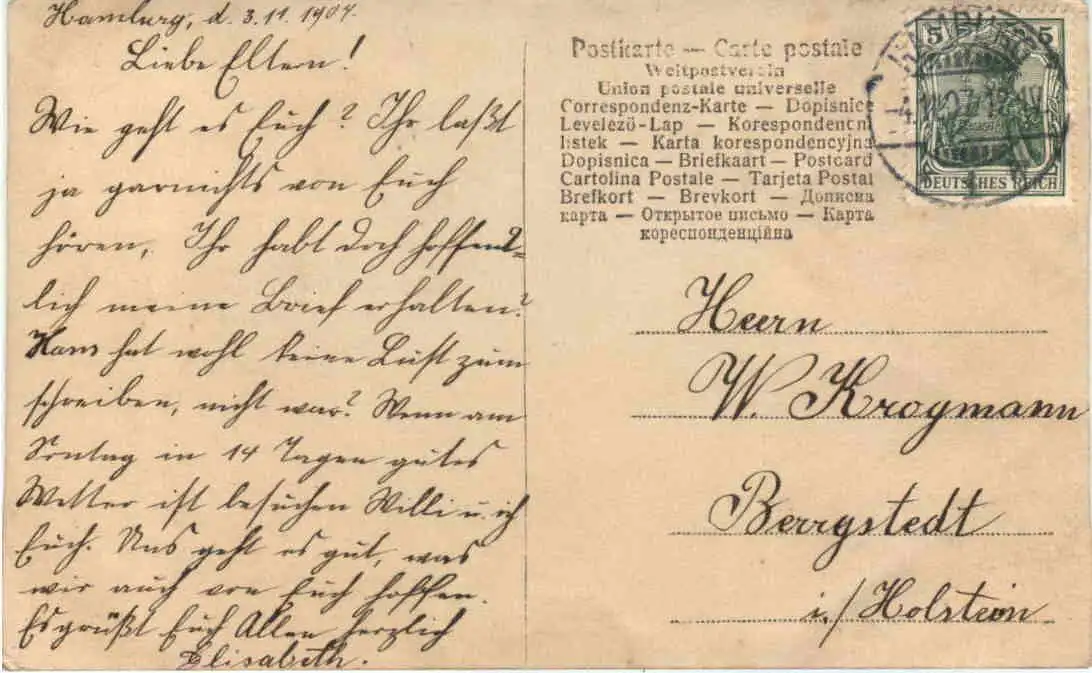 Hamburg, d. 3.11.1907.
Liebe Eltern!
Wie geht es Euch? Ihr laßt
ja garnichts von Euch
hören, Ihr habt doch hoffent-
lich meine Brief erhalten?
Hans hat wohl keine Lust zum
schreiben, nicht war? Wenn am
Sontag in 14 Tagen gutes
Wetter ist besuchen Willi u. ich
Euch. Uns geht es gut, was
wir auch von Euch hoffen.
Es grüßt Euch Allen herzlich
Elisabeth.
Postkarte — Carte postale
Weltpostverein
Union postale universelle
Correspondenz-Karte — Dopisnice
Levelező-Lap — Korespondencni
listek — Karta korespondencyjna
Dopisnica — Briefkaart — Postcard
Cartolina Postale — Tarjeta Postal
Brefkort — Brevkort — Дописна
карта — Открытое письмо — Карта
кореспонденційна
5 5
HAMBURG
DEUTSCHES REICH
Herrn
W. Krogmann
Berrgstedt
i./Holstein